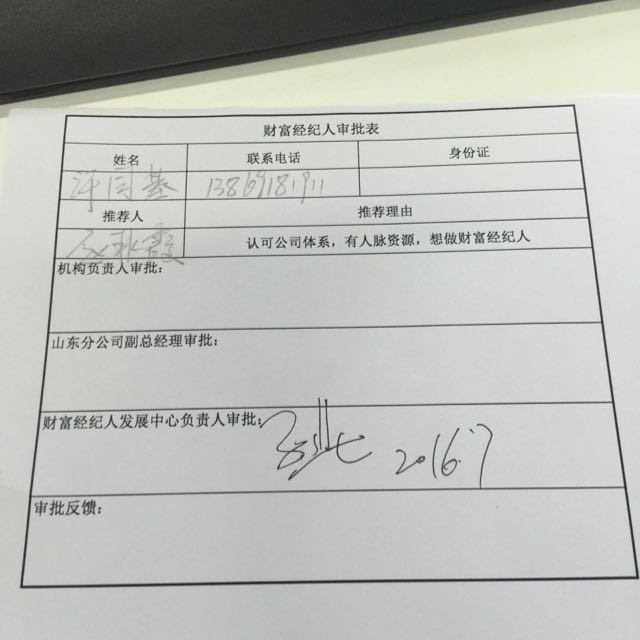 财富经纪人审批表
姓名 联系电话 身份证
同基
推荐人 推荐理由
认可公司体系，有人脉资源，想做财富经纪人
机构负责人审批：
山东分公司副总经理审批：
财富经纪人发展中心负责人审批：
2016.7
审批反馈：